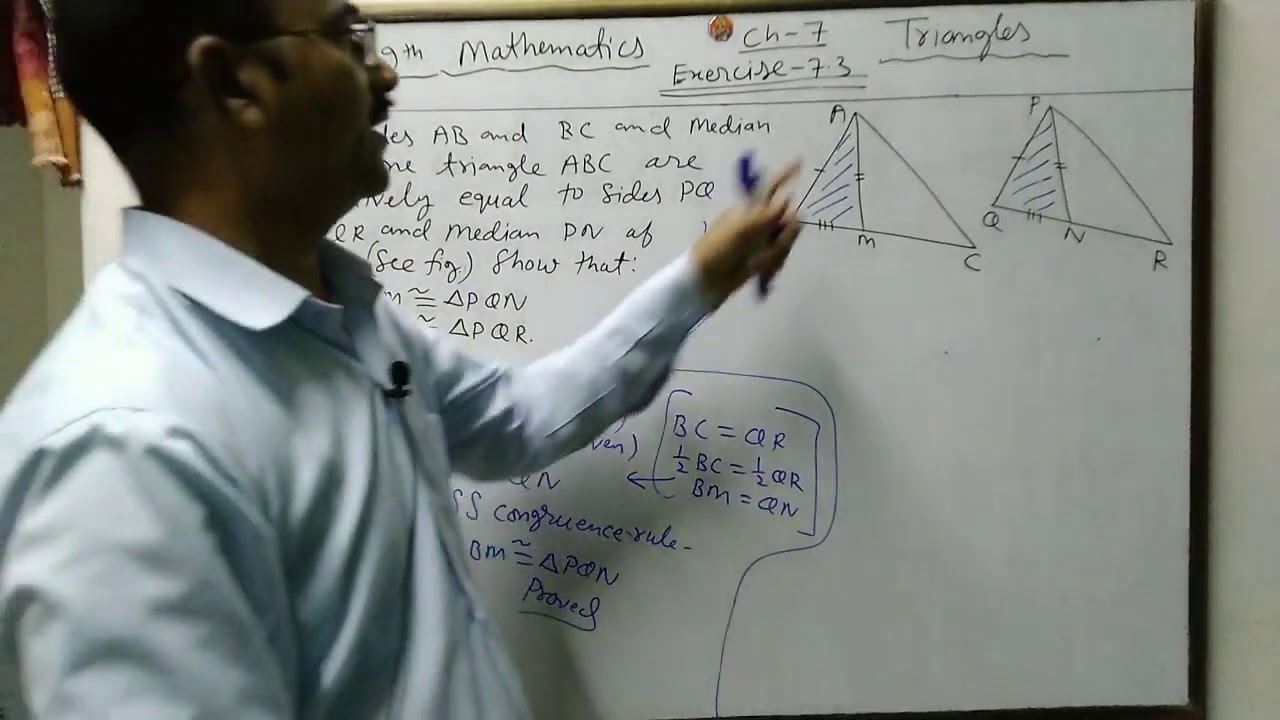 9th Mathematics
Ch-7
Triangles
Exercise-7.3
AB and BC and Median
triangle ABC are
equal to sides PQ
QR and Median PN of
(See fig.) Show that:
≅ ΔPQN
≅ ΔPQR.
A
M
C
P
Q
N
R
BC = QR
½ BC = ½ QR
BM = QN
QN
congruence rule-
BM ≅ ΔPQN
Proved